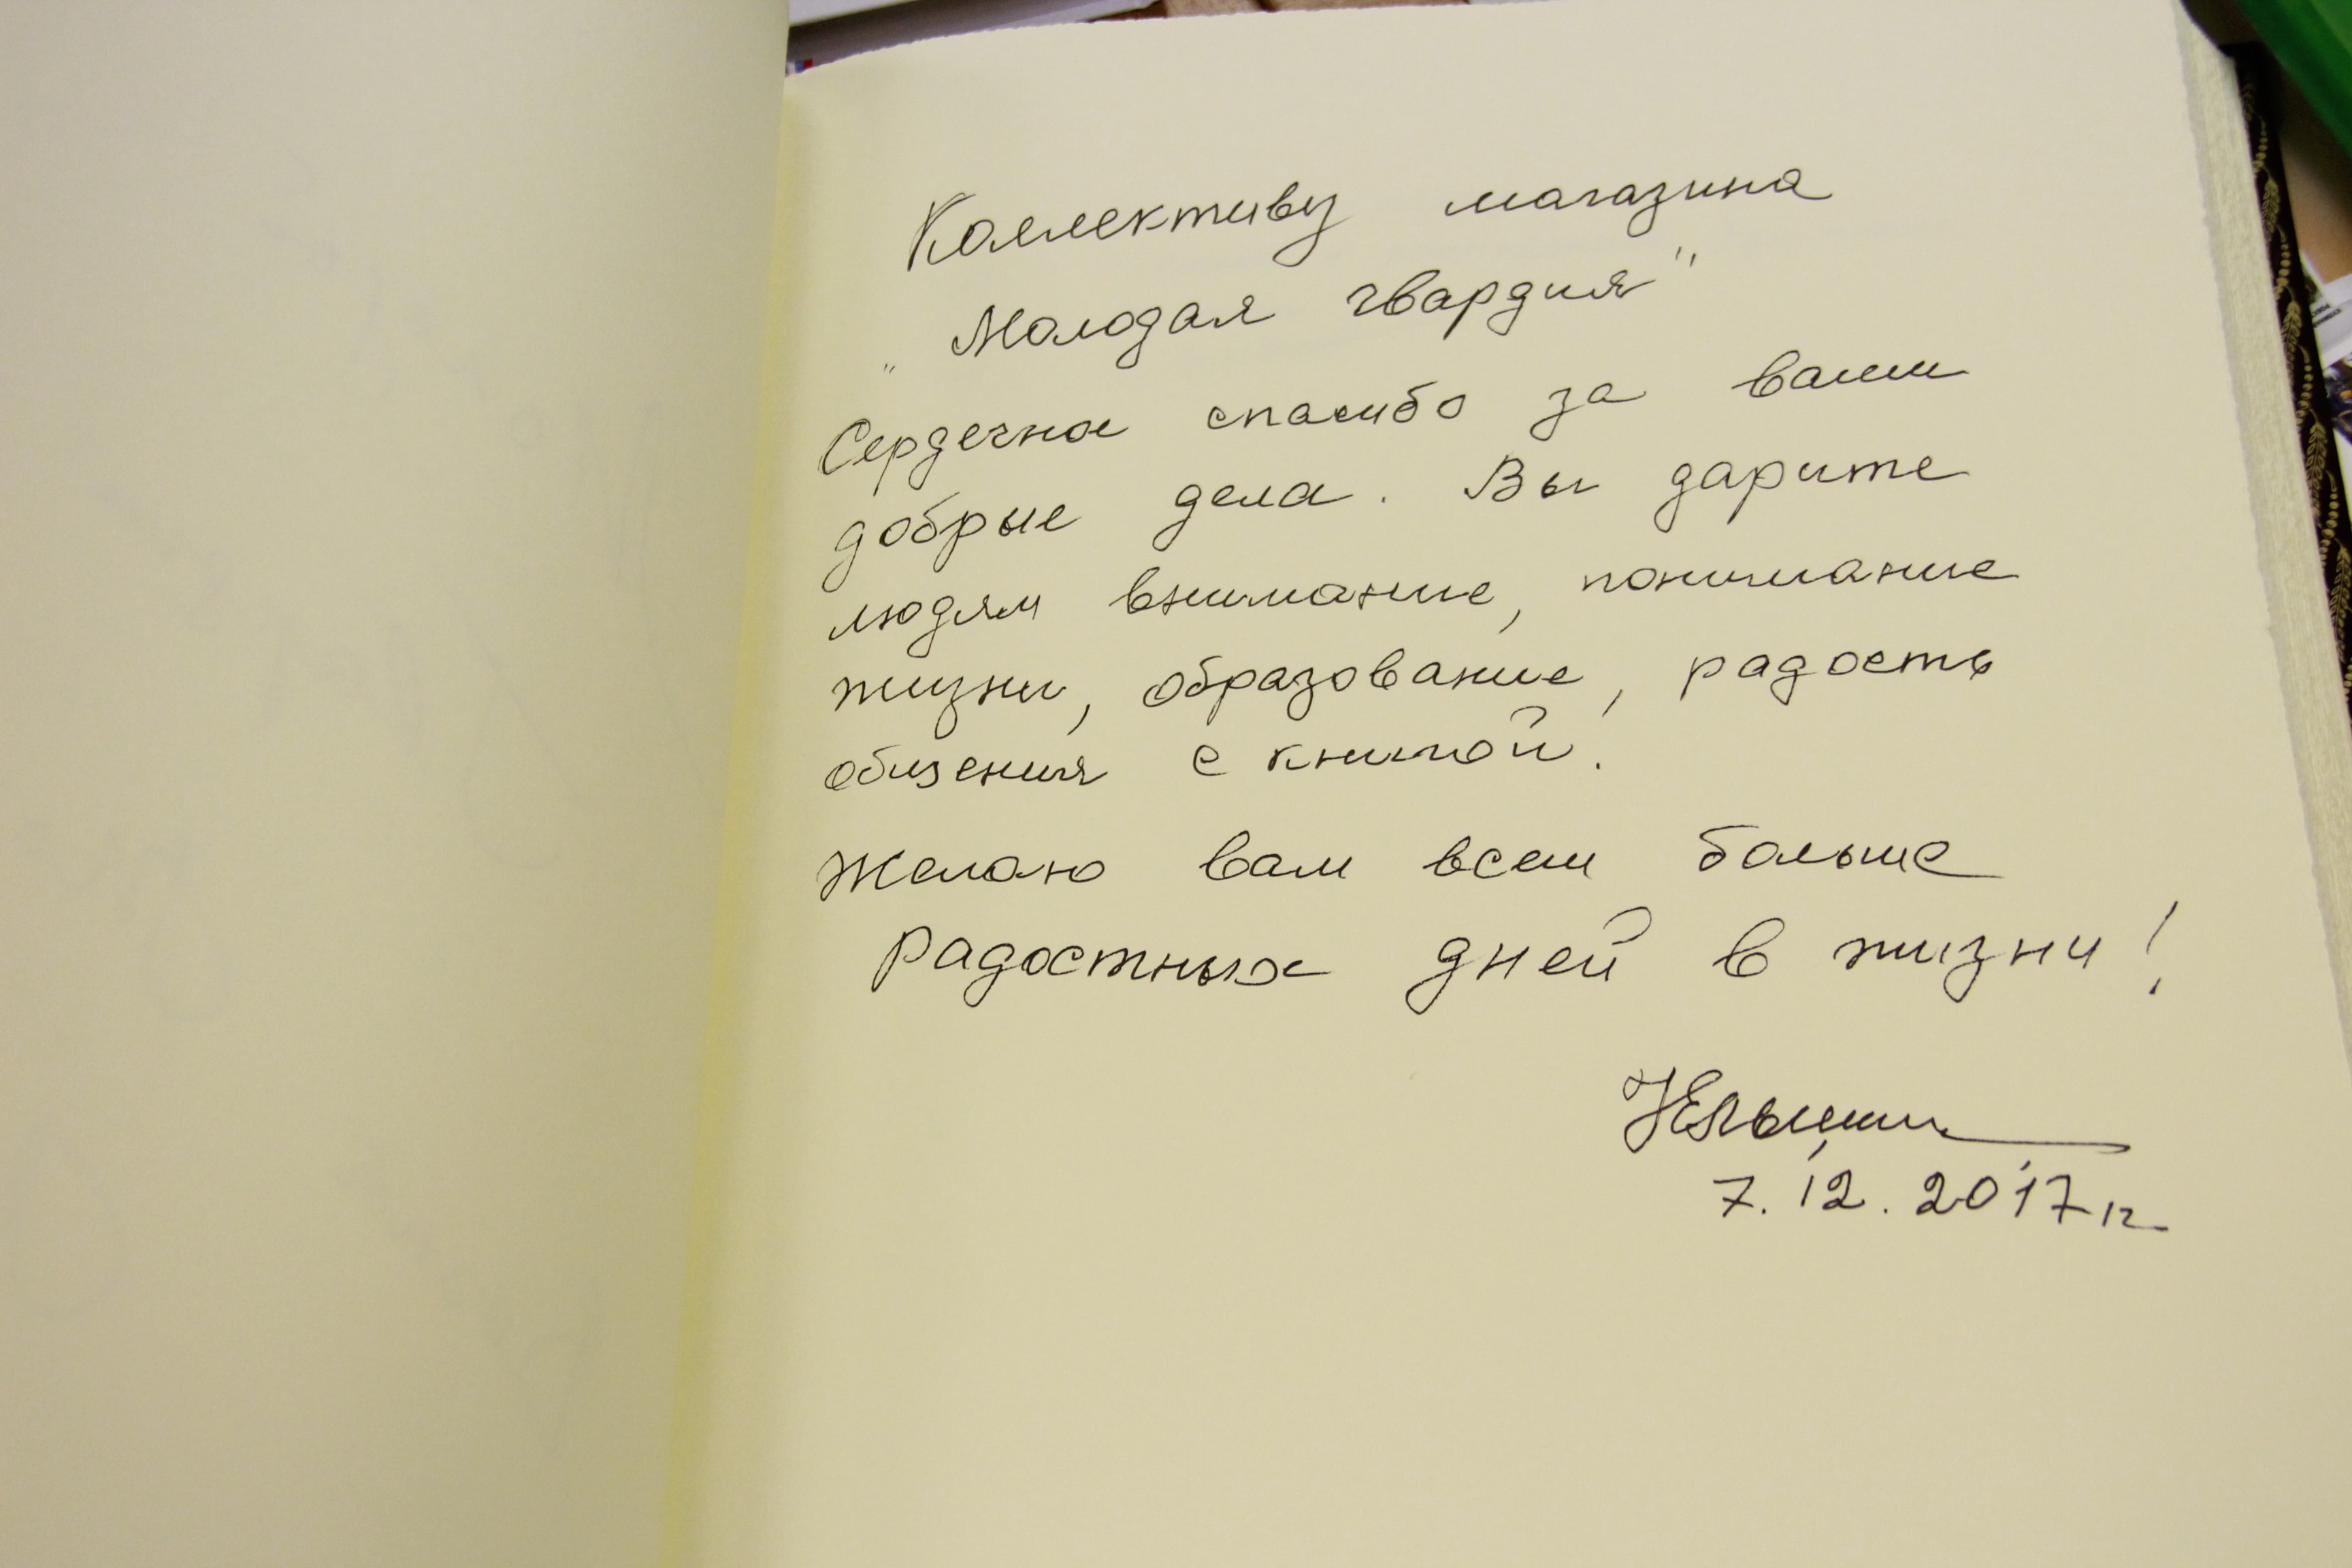 Коллективу магазина
„Молодая гвардия"
Сердечное спасибо за ваши
добрые дела. Вы дарите
людям внимание, понимание
жизни, образование, радость
общения с книгой.
Желаю вам всем больше
радостных дней в жизни!
7.12.2017 г.